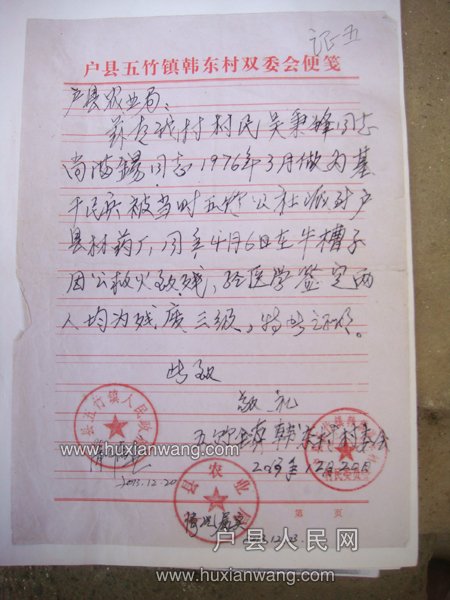 证五
户县五竹镇韩东村双委会便笺
户县农业局:
兹有我村村民吴秉锋同志
尚海锡同志1976年3月做为基
干民兵被当时五竹公社派到户
县材药厂,同年4月6日在牛槽子
因公救火致残,经医学鉴定两
人均为残废三级,特此证明。
此致
敬礼
五竹镇韩东村村委会
县五竹镇人民政府
情况属实
2013.12.20
县农业局
2013.12.23
第 页
www.huxianwang.com
www.huxianwang.com
户县人民网
www.huxianwang.com